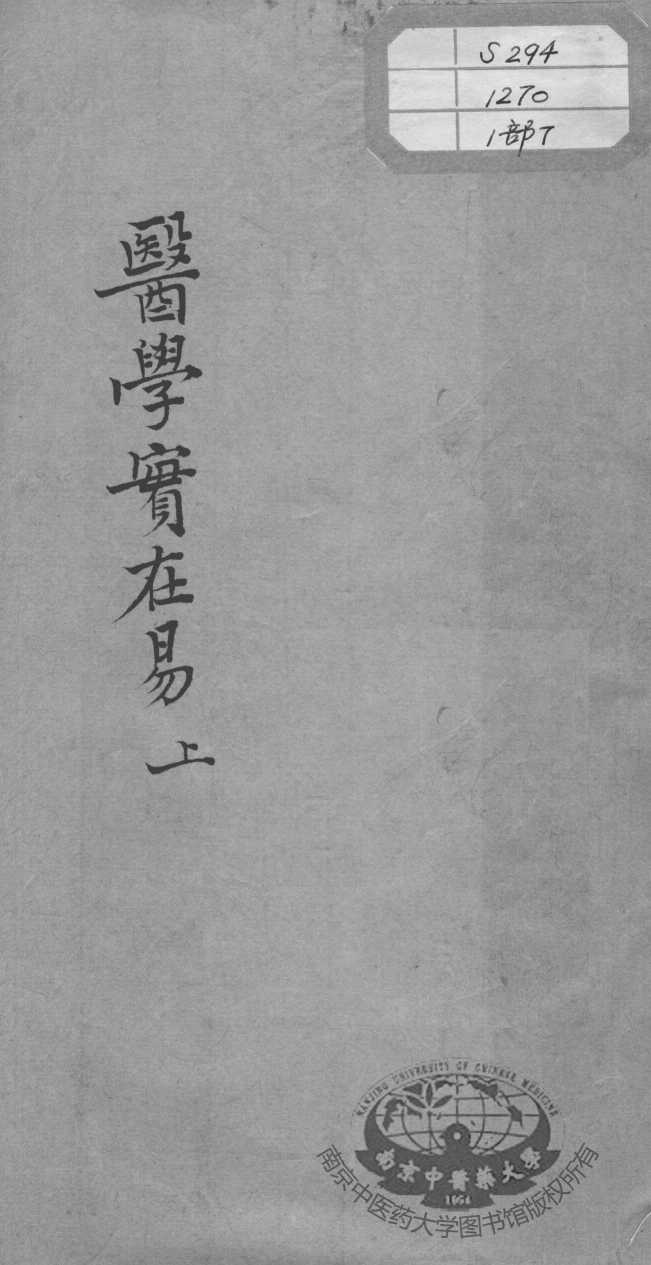 S294
1270
1部7
醫學實在易 上
NANJING UNIVERSITY OF CHINESE MEDICINE
南京中醫藥大學
1954
南京中医药大学图书馆版权所有